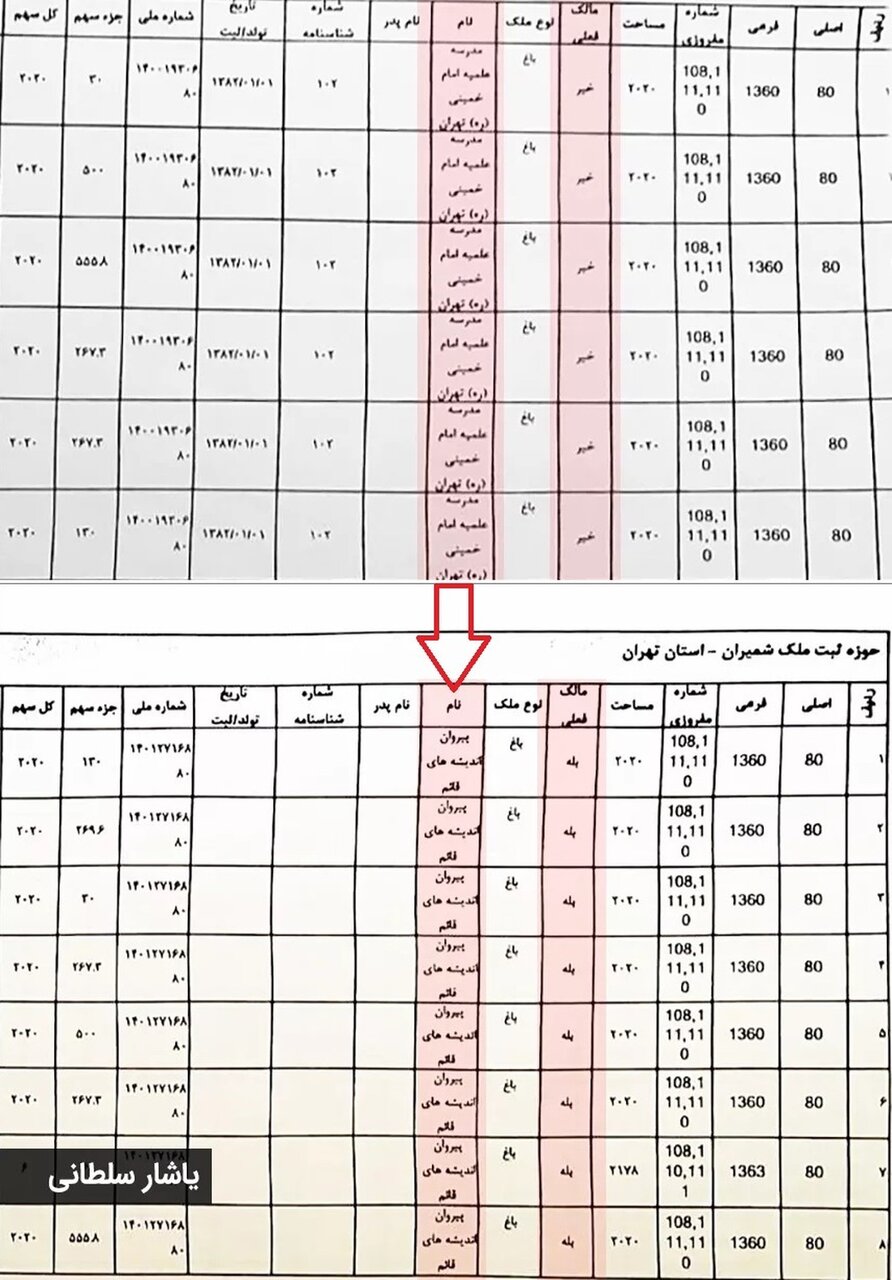 ردیف اصلی فرعی شماره مفروزی مساحت مالک فعلی نوع ملک نام نام پدر شماره شناسنامه تاریخ تولد/ثبت شماره ملی جزء سهم کل سهم
۱ 80 1360 108,111,110 ۲۰۲۰ خیر باغ مدرسه علمیه امام خمینی (ره) تهران ۱۰۲ ۱۳۸۲/۰۱/۰۱ ۱۴۰۰۱۹۳۰۶۸۰ ۳۰ ۲۰۲۰
80 1360 108,111,110 ۲۰۲۰ خیر باغ مدرسه علمیه امام خمینی (ره) تهران ۱۰۲ ۱۳۸۲/۰۱/۰۱ ۱۴۰۰۱۹۳۰۶۸۰ ۵۰۰ ۲۰۲۰
80 1360 108,111,110 ۲۰۲۰ خیر باغ مدرسه علمیه امام خمینی (ره) تهران ۱۰۲ ۱۳۸۲/۰۱/۰۱ ۱۴۰۰۱۹۳۰۶۸۰ ۵۵۵.۸ ۲۰۲۰
80 1360 108,111,110 ۲۰۲۰ خیر باغ مدرسه علمیه امام خمینی (ره) تهران ۱۰۲ ۱۳۸۲/۰۱/۰۱ ۱۴۰۰۱۹۳۰۶۸۰ ۲۶۷.۳ ۲۰۲۰
80 1360 108,111,110 ۲۰۲۰ خیر باغ مدرسه علمیه امام خمینی (ره) تهران ۱۰۲ ۱۳۸۲/۰۱/۰۱ ۱۴۰۰۱۹۳۰۶۸۰ ۲۶۷.۳ ۲۰۲۰
80 1360 108,111,110 ۲۰۲۰ خیر باغ مدرسه علمیه امام خمینی (ره) تهران ۱۰۲ ۱۳۸۲/۰۱/۰۱ ۱۴۰۰۱۹۳۰۶۸۰ ۱۳۰ ۲۰۲۰
حوزه ثبت ملک شمیران - استان تهران
ردیف اصلی فرعی شماره مفروزی مساحت مالک فعلی نوع ملک نام نام پدر شماره شناسنامه تاریخ تولد/ثبت شماره ملی جزء سهم کل سهم
۱ 80 1360 108,111,110 ۲۰۲۰ بله باغ پیروان اندیشه های قائم ۱۴۰۱۲۷۱۶۸۸۰ ۱۳۰ ۲۰۲۰
۲ 80 1360 108,111,110 ۲۰۲۰ بله باغ پیروان اندیشه های قائم ۱۴۰۱۲۷۱۶۸۸۰ ۲۶۹.۶ ۲۰۲۰
۳ 80 1360 108,111,110 ۲۰۲۰ بله باغ پیروان اندیشه های قائم ۱۴۰۱۲۷۱۶۸۸۰ ۳۰ ۲۰۲۰
۴ 80 1360 108,111,110 ۲۰۲۰ بله باغ پیروان اندیشه های قائم ۱۴۰۱۲۷۱۶۸۸۰ ۲۶۷.۳ ۲۰۲۰
۵ 80 1360 108,111,110 ۲۰۲۰ بله باغ پیروان اندیشه های قائم ۱۴۰۱۲۷۱۶۸۸۰ ۵۰۰ ۲۰۲۰
۶ 80 1360 108,111,110 ۲۰۲۰ بله باغ پیروان اندیشه های قائم ۱۴۰۱۲۷۱۶۸۸۰ ۲۶۷.۳ ۲۰۲۰
۷ 80 1363 108,110,111 ۲۱۷۸ بله باغ پیروان اندیشه های قائم ۱۴۰۱۲۷۱۶۸۸۰ ۶
۸ 80 1360 108,111,110 ۲۰۲۰ بله باغ پیروان اندیشه های قائم ۱۴۰۱۲۷۱۶۸۸۰ ۵۵۵.۸ ۲۰۲۰
یاشار سلطانی